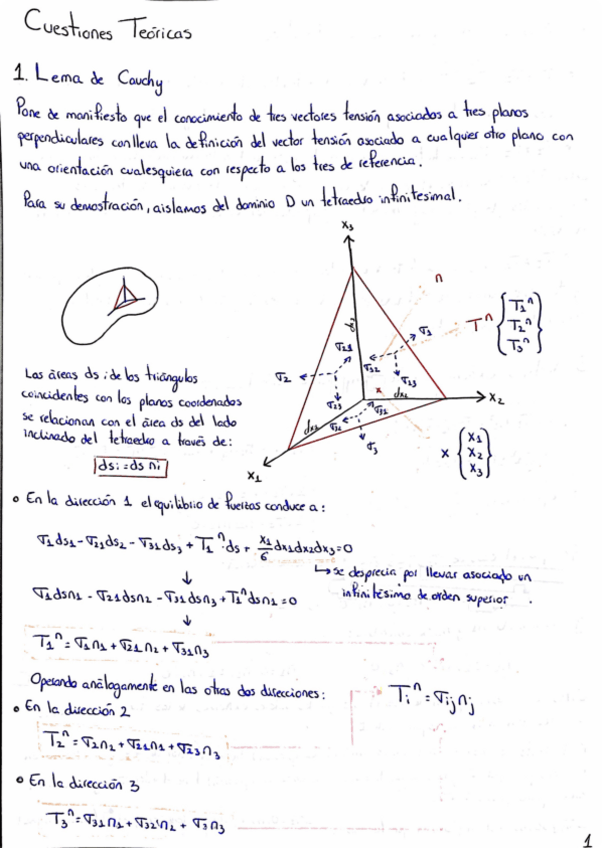 Cuestiones Teóricas
1. Lema de Cauchy
Pone de manifiesto que el conocimiento de tres vectores tensión asociados a tres planos
perpendiculares conlleva la definición del vector tensión asociado a cualquier otro plano con
una orientación cualesquiera con respecto a los tres de referencia.
Para su demostración, aislamos del dominio D un tetraedro infinitesimal.
x₃
n
dx₃
σ₁
Tⁿ { T₁ⁿ T₂ⁿ T₃ⁿ }
σ₂₁
σ₂
σ₃₂
σ₂₃
σ₁₃
dx₁
x₂
dx₂
σ₃₁
σ₃₂
σ₃
x { x₁ x₂ x₃ }
x₁
Las áreas dsi de los triángulos
coincidentes con los planos coordenados
se relacionan con el área ds del lado
inclinado del tetraedro a través de:
dsi = ds ni
• En la dirección 1 el equilibrio de fuerzas conduce a:
σ₁ds₁ - σ₂₁ds₂ - σ₃₁ds₃ + T₁ⁿ·ds + x₁/6 dx₁dx₂dx₃ = 0
↳ se desprecia por llevar asociado un
infinitésimo de orden superior.
σ₁dsn₁ - σ₂₁dsn₂ - σ₃₁dsn₃ + T₁ⁿdsn₁ = 0
T₁ⁿ = σ₁n₁ + σ₂₁n₂ + σ₃₁n₃
Operando análogamente en las otras dos direcciones:
Tᵢⁿ = σᵢⱼnⱼ
• En la dirección 2
T₂ⁿ = σ₂n₂ + σ₂₁n₁ + σ₂₃n₃
• En la dirección 3
T₃ⁿ = σ₃₁n₁ + σ₃₂n₂ + σ₃n₃
1